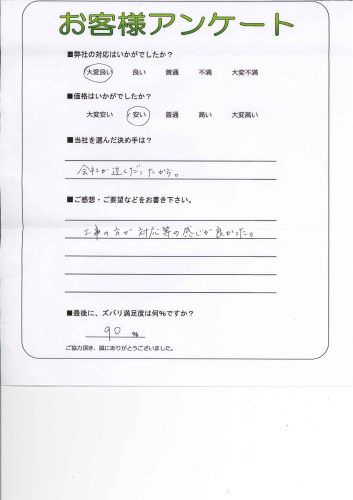 お客様アンケート
■弊社の対応はいかがでしたか？
大変良い 良い 普通 不満 大変不満
■価格はいかがでしたか？
大変安い 安い 普通 高い 大変高い
■当社を選んだ決め手は？
会社が近くだったから。
■ご感想・ご要望などをお書き下さい。
工事の方が対応等の感じが良かった。
■最後に、ズバリ満足度は何%ですか？
90 %
ご協力頂き、誠にありがとうございました。